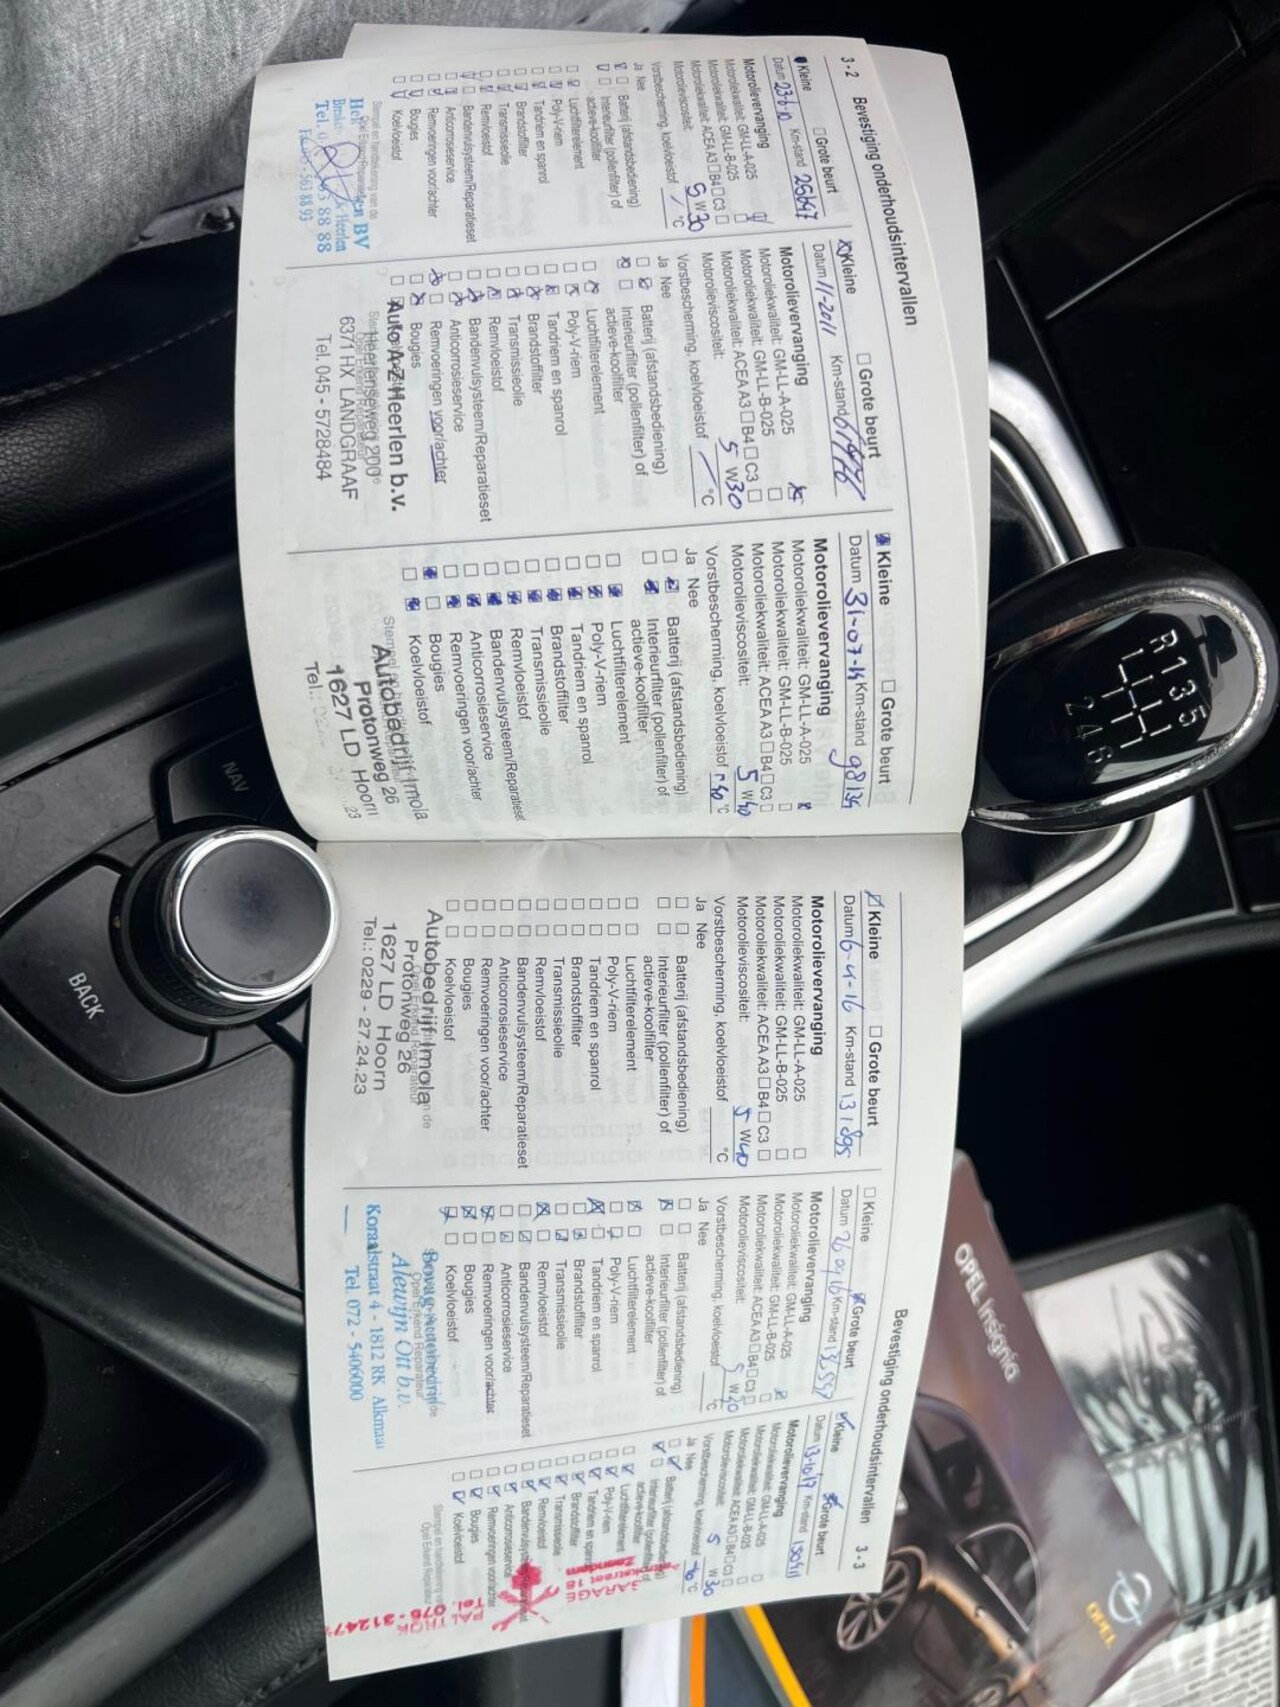 3-2 Bevestiging onderhoudsintervallen
Kleine ☐ Grote beurt
Datum 23-6-10 Km-stand 25647
Motorolievervanging
Motoroliekwaliteit: GM-LL-A-025
Motoroliekwaliteit: GM-LL-B-025
Motoroliekwaliteit: ACEA A3 ☐ B4 ☐ C3 ☐
Motorolieviscositeit: 5 W 30
Vorstbescherming, koelvloeistof °C
Ja Nee
Batterij (afstandsbediening)
Interieurfilter (pollenfilter) of
actieve-koolfilter
Luchtfilterelement
Poly-V-riem
Tandriem en spanrol
Brandstoffilter
Transmissieolie
Remvloeistof
Bandenvulsysteem/Reparatieset
Anticorrosieservice
Remvoeringen voor/achter
Bougies
Koelvloeistof
BV
Heerlen
Kleine ☐ Grote beurt
Datum 11-2011 Km-stand
Motorolievervanging
Motoroliekwaliteit: GM-LL-A-025
Motoroliekwaliteit: GM-LL-B-025
Motoroliekwaliteit: ACEA A3 ☐ B4 ☐ C3 ☐
Motorolieviscositeit: 5 W 30
Vorstbescherming, koelvloeistof °C
Ja Nee
Batterij (afstandsbediening)
Interieurfilter (pollenfilter) of
actieve-koolfilter
Luchtfilterelement
Poly-V-riem
Tandriem en spanrol
Brandstoffilter
Transmissieolie
Remvloeistof
Bandenvulsysteem/Reparatieset
Anticorrosieservice
Remvoeringen voor/achter
Bougies
Auto A-Z Heerlen b.v.
Heerlenseweg 200
6371 HX LANDGRAAF
Tel. 045 - 5728484
Kleine ☐ Grote beurt
Datum 31-07-14 Km-stand 98134
Motorolievervanging
Motoroliekwaliteit: GM-LL-A-025
Motoroliekwaliteit: GM-LL-B-025
Motoroliekwaliteit: ACEA A3 ☐ B4 ☐ C3 ☐
Motorolieviscositeit: 5 W 40
Vorstbescherming, koelvloeistof -40 °C
Ja Nee
Batterij (afstandsbediening)
Interieurfilter (pollenfilter) of
actieve-koolfilter
Luchtfilterelement
Poly-V-riem
Tandriem en spanrol
Brandstoffilter
Transmissieolie
Remvloeistof
Bandenvulsysteem/Reparatieset
Anticorrosieservice
Remvoeringen voor/achter
Bougies
Koelvloeistof
Autobedrijf Imola
Protonweg 26
1627 LD Hoorn
Tel.:
Bevestiging onderhoudsintervallen 3-3
Kleine ☐ Grote beurt
Datum 6-4-16 Km-stand 131895
Motorolievervanging
Motoroliekwaliteit: GM-LL-A-025
Motoroliekwaliteit: GM-LL-B-025
Motoroliekwaliteit: ACEA A3 ☐ B4 ☐ C3 ☐
Motorolieviscositeit: 5 W 40
Vorstbescherming, koelvloeistof °C
Ja Nee
Batterij (afstandsbediening)
Interieurfilter (pollenfilter) of
actieve-koolfilter
Luchtfilterelement
Poly-V-riem
Tandriem en spanrol
Brandstoffilter
Transmissieolie
Remvloeistof
Bandenvulsysteem/Reparatieset
Anticorrosieservice
Remvoeringen voor/achter
Bougies
Koelvloeistof
Autobedrijf Imola
Protonweg 26
1627 LD Hoorn
Tel.: 0229 - 27.24.23
☐ Kleine Grote beurt
Datum Km-stand
Motorolievervanging
Motoroliekwaliteit: GM-LL-A-025
Motoroliekwaliteit: GM-LL-B-025
Motoroliekwaliteit: ACEA A3 ☐ B4 ☐ C3 ☐
Motorolieviscositeit: 5 W
Vorstbescherming, koelvloeistof °C
Ja Nee
Batterij (afstandsbediening)
Interieurfilter (pollenfilter) of
actieve-koolfilter
Luchtfilterelement
Poly-V-riem
Tandriem en spanrol
Brandstoffilter
Transmissieolie
Remvloeistof
Bandenvulsysteem/Reparatieset
Anticorrosieservice
Remvoeringen voor/achter
Bougies
Koelvloeistof
Bovag Autobedrijf
Alewijn Ott b.v.
Koraalstraat 4 - 1812 RK Alkmaar
Tel. 072 - 5406000
Kleine Grote beurt
Datum 13-10-17 Km-stand
Motorolievervanging
Motoroliekwaliteit: GM-LL-A-025
Motoroliekwaliteit: GM-LL-B-025
Motoroliekwaliteit: ACEA A3 ☐ B4 ☐ C3 ☐
Motorolieviscositeit: 5 W 30
Vorstbescherming, koelvloeistof °C
Ja Nee
Batterij (afstandsbediening)
Interieurfilter (pollenfilter) of
actieve-koolfilter
Luchtfilterelement
Poly-V-riem
Tandriem en spanrol
Brandstoffilter
Transmissieolie
Remvloeistof
Anticorrosieservice
Remvoeringen voor/achter
Bougies
Koelvloeistof
GARAGE
PALTROK
R 1 3 5
2 4 6
NAV
BACK
OPEL Insignia
OPEL